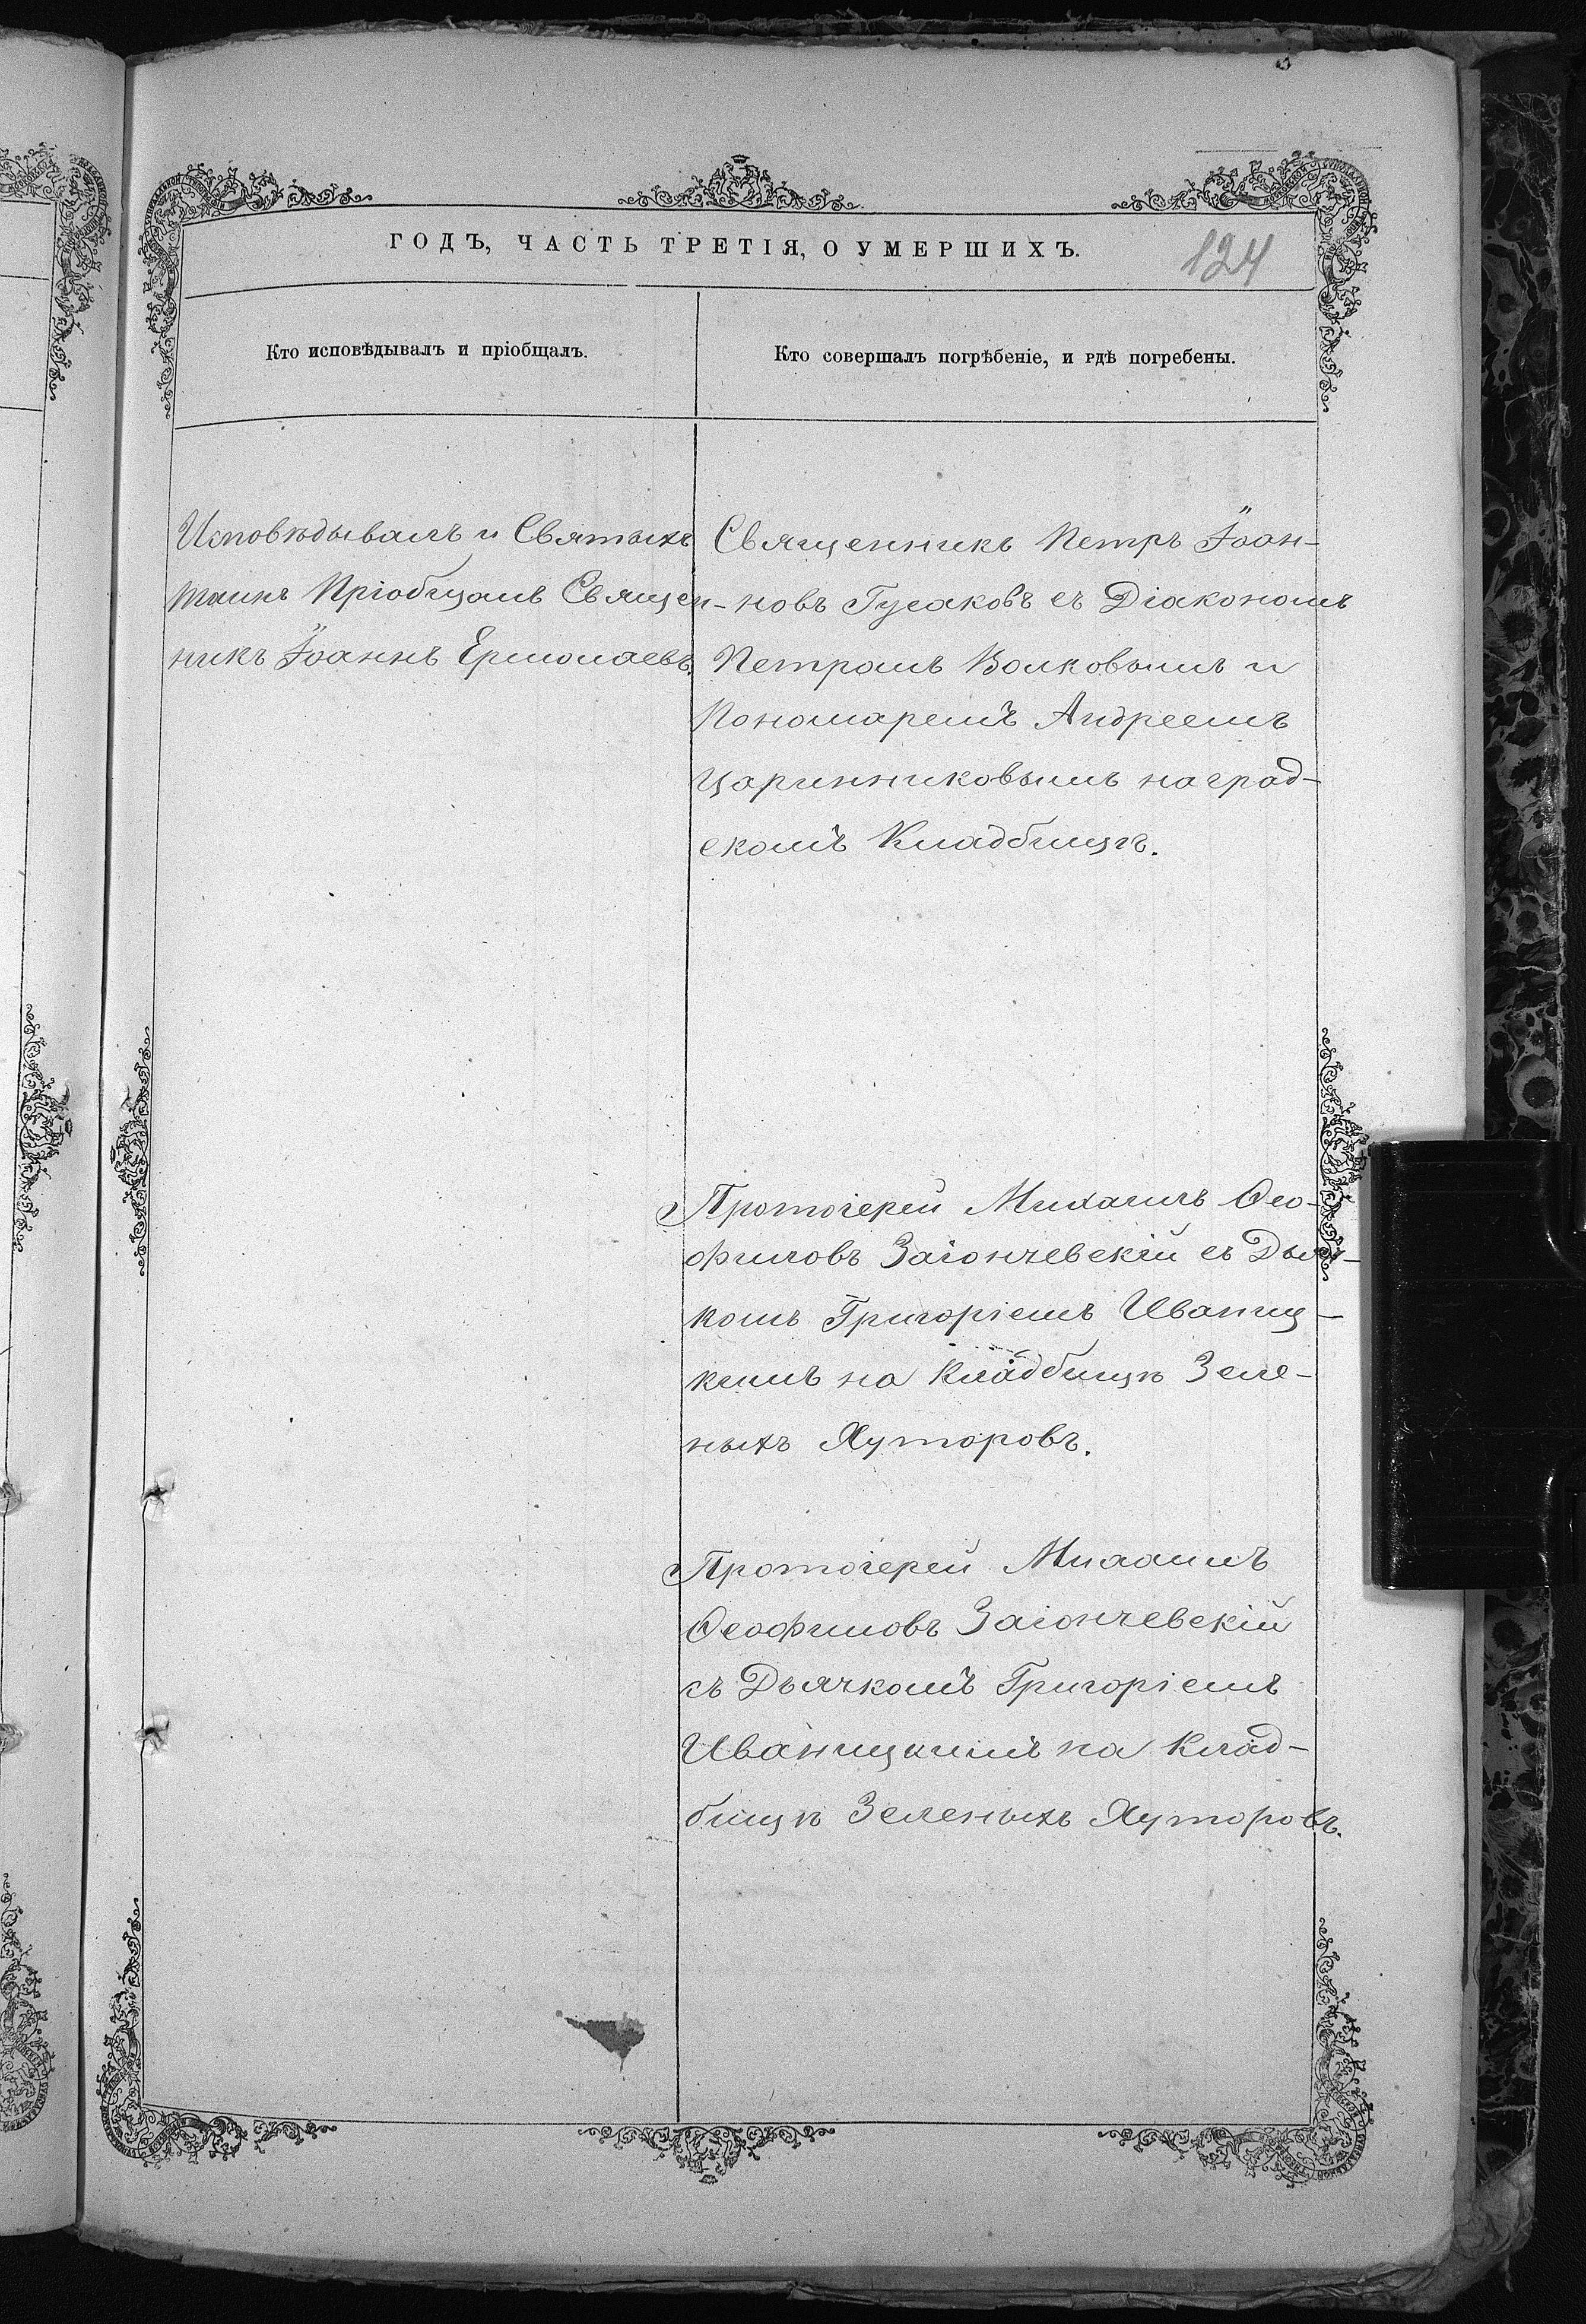 ГОДЪ, ЧАСТЬ ТРЕТІЯ, О УМЕРШИХЪ.
124
Кто исповѣдывалъ и пріобщалъ.
Кто совершалъ погрѣбеніе, и гдѣ погребены.
Исповѣдывалъ и Святыхъ
таинъ Пріобщалъ Священ-
никъ Іоаннъ Ермолаевъ.
Священникъ Петръ Іоан-
новъ Гусаковъ съ Діакономъ
Петромъ Волковымъ и
Пономаремъ Андреемъ
Царинниковымъ на град-
скомъ Кладбищѣ.
Протоіерей Михаилъ Ѳео-
филовъ Заіончевскій съ Дьяч-
комъ Григоріемъ Иваниц-
кимъ на Кладбищѣ Зеле-
ныхъ Хуторовъ.
Протоіерей Михаилъ
Ѳеофиловъ Заіончевскій
съ Дьячкомъ Григоріемъ
Иваницкимъ на Клад-
бищѣ Зеленыхъ Хуторовъ.